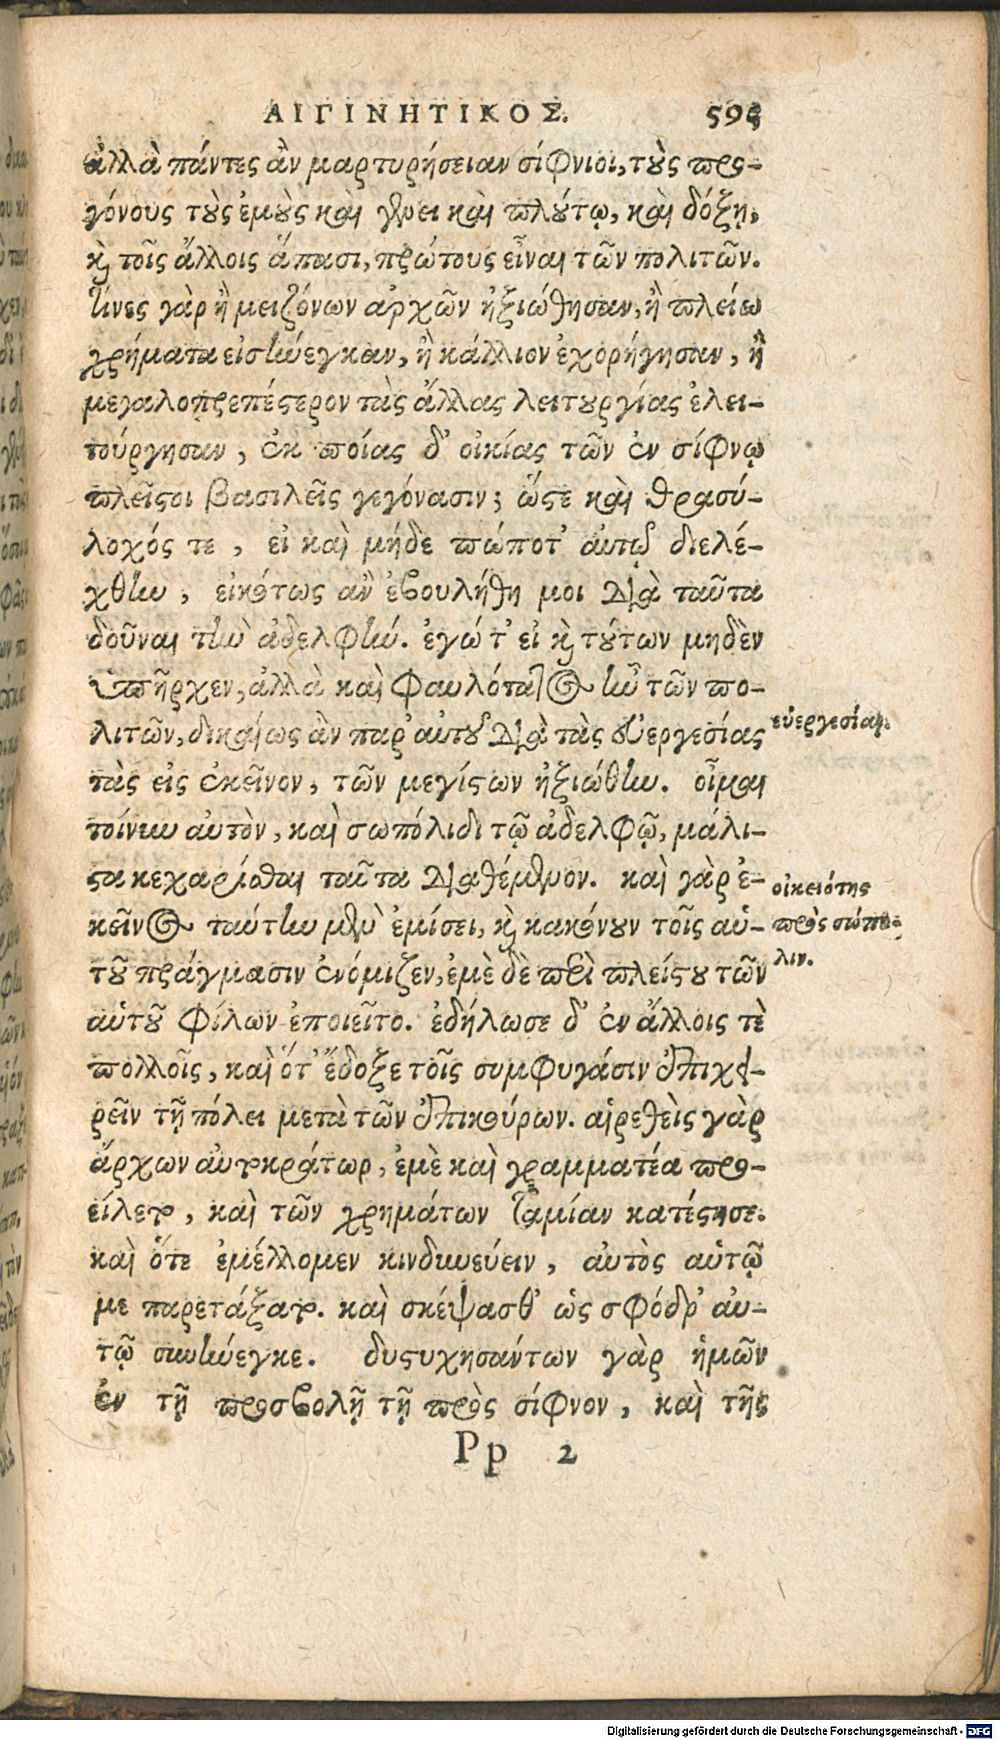 ΑΙΓΙΝΗΤΙΚΟΣ. 595
ἀλλὰ πάντες ἂν μαρτυρήσειαν σίφνιοι, τοὺς προ-
γόνους τοὺς ἐμοὺς καὶ γένει καὶ πλούτῳ, καὶ δόξῃ,
καὶ τοῖς ἄλλοις ἅπασι, πρώτους εἶναι τῶν πολιτῶν.
τίνες γὰρ ἢ μειζόνων ἀρχῶν ἠξιώθησαν, ἢ πλείω
χρήματα εἰσήνεγκαν, ἢ κάλλιον ἐχορήγησαν, ἢ
μεγαλοπρεπέστερον τὰς ἄλλας λειτουργίας ἐλει-
τούργησαν, ἐκ ποίας δ' οἰκίας τῶν ἐν σίφνῳ
πλεῖστοι βασιλεῖς γεγόνασιν; ὥστε καὶ θρασύ-
λοχός τε, εἰ καὶ μήδε πώποτ' αὐτῷ διελέ-
χθην, εἰκότως ἂν ἐβουλήθη μοι διὰ ταῦτα
δοῦναι τὴν ἀδελφήν. ἐγώ τ' εἰ καὶ τούτων μηδὲν
ὑπῆρχεν, ἀλλὰ καὶ φαυλότατος ἦν τῶν πο-
λιτῶν, δικαίως ἂν παρ' αὐτοῦ διὰ τὰς εὐεργεσίας
εὐεργεσίαι.
τὰς εἰς ἐκεῖνον, τῶν μεγίστων ἠξιώθην. οἶμαι
τοίνυν αὐτὸν, καὶ σωπόλιδι τῷ ἀδελφῷ, μάλι-
στα κεχαρίσθαι ταῦτα διαθέμενον. καὶ γὰρ ἐ-
κεῖνος ταύτην μὲν ἐμίσει, καὶ κακόνουν τοῖς αὑ-
οἰκειότης
πρὸς σώπο-
λιν.
τοῦ πράγμασιν ἐνόμιζεν, ἐμὲ δὲ περὶ πλείστου τῶν
αὑτοῦ φίλων ἐποιεῖτο. ἐδήλωσε δ' ἐν ἄλλοις τὲ
πολλοῖς, καὶ ὅτ' ἔδοξε τοῖς συμφυγάσιν ἐπιχει-
ρεῖν τῇ πόλει μετὰ τῶν ἐπικούρων. αἱρεθεὶς γὰρ
ἄρχων αὐτοκράτωρ, ἐμὲ καὶ γραμματέα προ-
είλετο, καὶ τῶν χρημάτων ταμίαν κατέστησε.
καὶ ὅτε ἐμέλλομεν κινδυνεύειν, αὐτὸς αὑτῷ
με παρετάξατο. καὶ σκέψασθ' ὡς σφόδρ' αὐ-
τῷ συνήνεγκε. δυστυχησάντων γὰρ ἡμῶν
ἐν τῇ προσβολῇ τῇ πρὸς σίφνον, καὶ τῆς
Pp 2
Digitalisierung gefördert durch die Deutsche Forschungsgemeinschaft - DFG